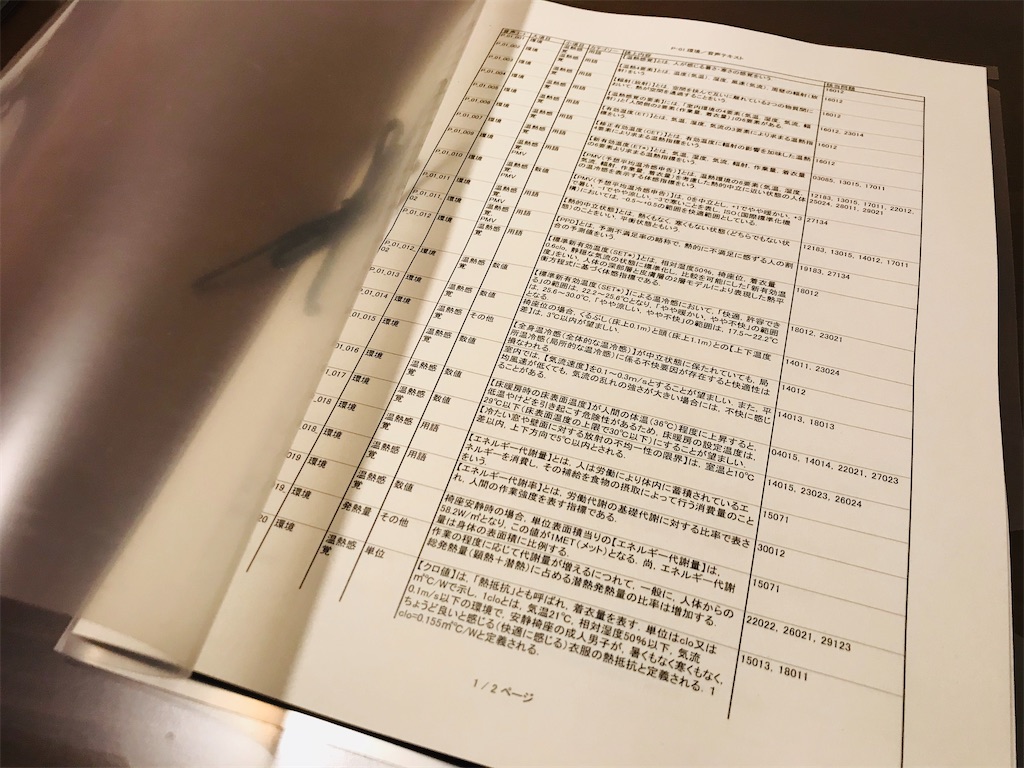 P-01 環境／音声テキスト
該当問題
P_01_002 環境 温熱感覚 用語 【温熱感覚】とは、人が感じる暑さ・寒さの感覚をいう
18012
【温熱4要素】とは、温度(気温)、湿度、気流(気流)、周壁の輻射(放射)をいう
18012
P_01_004 環境 温熱感覚 用語 【輻射(放射)】とは、空間を挟んで互いに離れている2つの物質間において、熱が空間を通過することをいう
P_01_005 環境 温熱感覚 用語 【温熱感覚の要素】とは、「室内環境の4要素(気温、湿度、気流、輻射)」と「人間側の2要素(作業量、着衣量)」の6要素がある。
16012, 23014
【有効温度(ET)】とは、気温、湿度、気流の3要素により求まる温熱指標をいう
16012
P_01_007 環境 温熱感覚 用語 【修正有効温度(CET)】とは、有効温度に輻射の影響を加味した温熱4要素により求まる温熱指標をいう
16012
P_01_008 環境 温熱感覚 用語 【新有効温度(ET*)】とは、気温、湿度、気流、輻射、作業量、着衣量の6要素より求まる温熱指標をいう
03085, 13015, 17011
P_01_009 環境 温熱感覚 PMV 用語 【PMV(予想平均温冷感申告)】とは、温熱環境の6要素(気温、湿度、気流、輻射、作業量、着衣量)を考慮した熱的中立に近い状態の人体の温冷感を表示する体感指標をいう。
12183, 13015, 17011, 22012,
25024, 28011, 29021
P_01_010 環境 温熱感覚 PMV 数値 【PMV(予想平均温冷感申告)】は、0を中立とし、+1でやや暖かい、+3で暑い、-1でやや涼しい、-3で寒いことを表し、ISO(国際標準化機構)においては、-0.5~+0.5の範囲を快適範囲としている。
27134
P_01_011 環境 温熱感覚 PMV 用語 【熱的中立状態】とは、熱くもなく、寒くもない状態(どちらでもない状態)のことをいい、平衡状態ともいう。
12183, 13015, 14012, 17011
P_01_011_02 環境 温熱感覚 PMV 用語 【PPD】とは、予測不満足率の略称で、熱的に不満足に感ずる人の割合の予測値をいう
19183, 27134
P_01_012 環境 温熱感覚 用語 【標準新有効温度(SET*)】とは、相対湿度50%、椅座位、着衣量0.6clo、静穏な気流の状態に標準化し、比較を可能にした「新有効温度」をいい、人体の深部層と皮膚層の2層モデルにより表現した熱平衡方程式に基づく体感指標である。
18012
P_01_012_02 環境 温熱感覚 数値 【標準新有効温度(SET*)】による温冷感において、「快適、許容できる」の範囲は、22.2~25.6℃となり、「やや暖かい、やや不快」の範囲は、25.6~30.0℃、「やや涼しい、やや不快」の範囲は、17.5~22.2℃となる。
18012, 23021
P_01_013 環境 温熱感覚 数値 椅座位の場合、くるぶし(床上0.1m)と頭(床上1.1m)との【上下温度差】は、3℃以内が望ましい。
14011, 23024
P_01_014 環境 温熱感覚 その他 【全身温冷感(全体的な温冷感)】が中立状態に保たれていても、局所温冷感(局所的な温冷感)に係る不快要因が存在すると快適性は損なわれる。
14012
_01_015 環境 温熱感覚 数値 室内では、【気流速度】を0.1~0.3m/sとすることが望ましい。また、平均風速が低くても、気流の乱れの強さが大きい場合には、不快に感じることがある。
14013, 18013
01_016 環境 温熱感覚 数値 【床暖房時の床表面温度】が人間の体温(36℃)程度に上昇すると、低温やけどを引き起こす危険性があるため、床暖房の設定温度は、29℃以下(床表面温度の上限で30℃以下)にすることが望ましい。
04015, 14014, 22021, 27023
1_017 環境 温熱感覚 数値 【冷たい窓や壁面に対する放射の不均一性の限界】は、室温と10℃差以内、上下方向で5℃以内とされる。
14015, 23023, 26024
_018 環境 温熱感覚 用語 【エネルギー代謝量】とは、人は労働により体内に蓄積されているエネルギーを消費し、その補給を食物の摂取によって行う消費量のことをいう
15071
018_ 環境 温熱感覚 用語 【エネルギー代謝率】とは、労働代謝の基礎代謝に対する比率で表され、人間の作業強度を表す指標である。
30012
019 環境 温熱感覚 数値 椅座安静時の場合、単位表面積当りの【エネルギー代謝量】は、58.2W/㎡となり、この値が1MET(メット)となる。尚、エネルギー代謝量は身体の表面積に比例する。
15071
19_ 環境 発熱量 その他 作業の程度に応じて代謝量が増えるにつれて、一般に、人体からの総発熱量(顕熱+潜熱)に占める潜熱発熱量の比率は増加する。
22022, 26021, 29123
20 環境 温熱感覚 単位 【クロ値】は、「熱抵抗」とも呼ばれ、着衣量を表す。単位はclo又は㎡℃/Wで示し、1cloとは、気温21℃、相対湿度50%以下、気流0.1m/s以下の環境で、安静椅座の成人男子が、暑くもなく寒くもなく、ちょうど良いと感じる(快適に感じる)衣服の熱抵抗と定義される。1clo=0.155㎡℃/Wと定義される。
15013, 18011
1 / 2 ページ